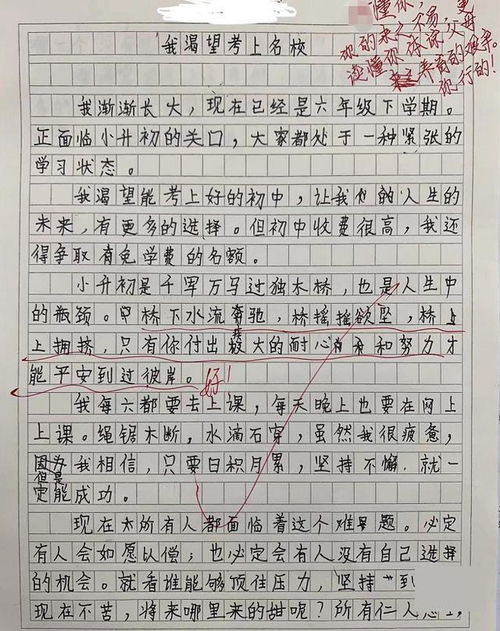 懂你,
你的来之不易,父母
读懂你,体谅父母
养育的艰辛。
你行的!
我渴望考上名校
我渐渐长大,现在已经是六年级下学期。
正面临小升初的关口,大家都处于一种紧张的
学习状态。
我渴望能考上好的初中,让我们的人生的
未来,有更多的选择。但初中收费很高,我还
得争取有免学费的名额。
小升初是千军万马过独木桥,也是人生中
的瓶颈。桥下水流奔驰,桥摇摇欲坠,桥上
上拥挤,只有你付出极大的耐心和努力才
能平安到过彼岸。好!
我每六都要去上课,每天晚上也要在网上
上课。绳锯木断,水滴石穿,虽然我很疲惫,
但是我相信,只要日积月累,坚持不懈,就一
定能成功。
现在所有人都面临着这个难题。必定
有人会如愿以偿;也必定会有人没有自己选择
的机会。就看谁能够顶住压力,坚持到
现在不苦,将来哪里来的甜呢?所有仁人志士,